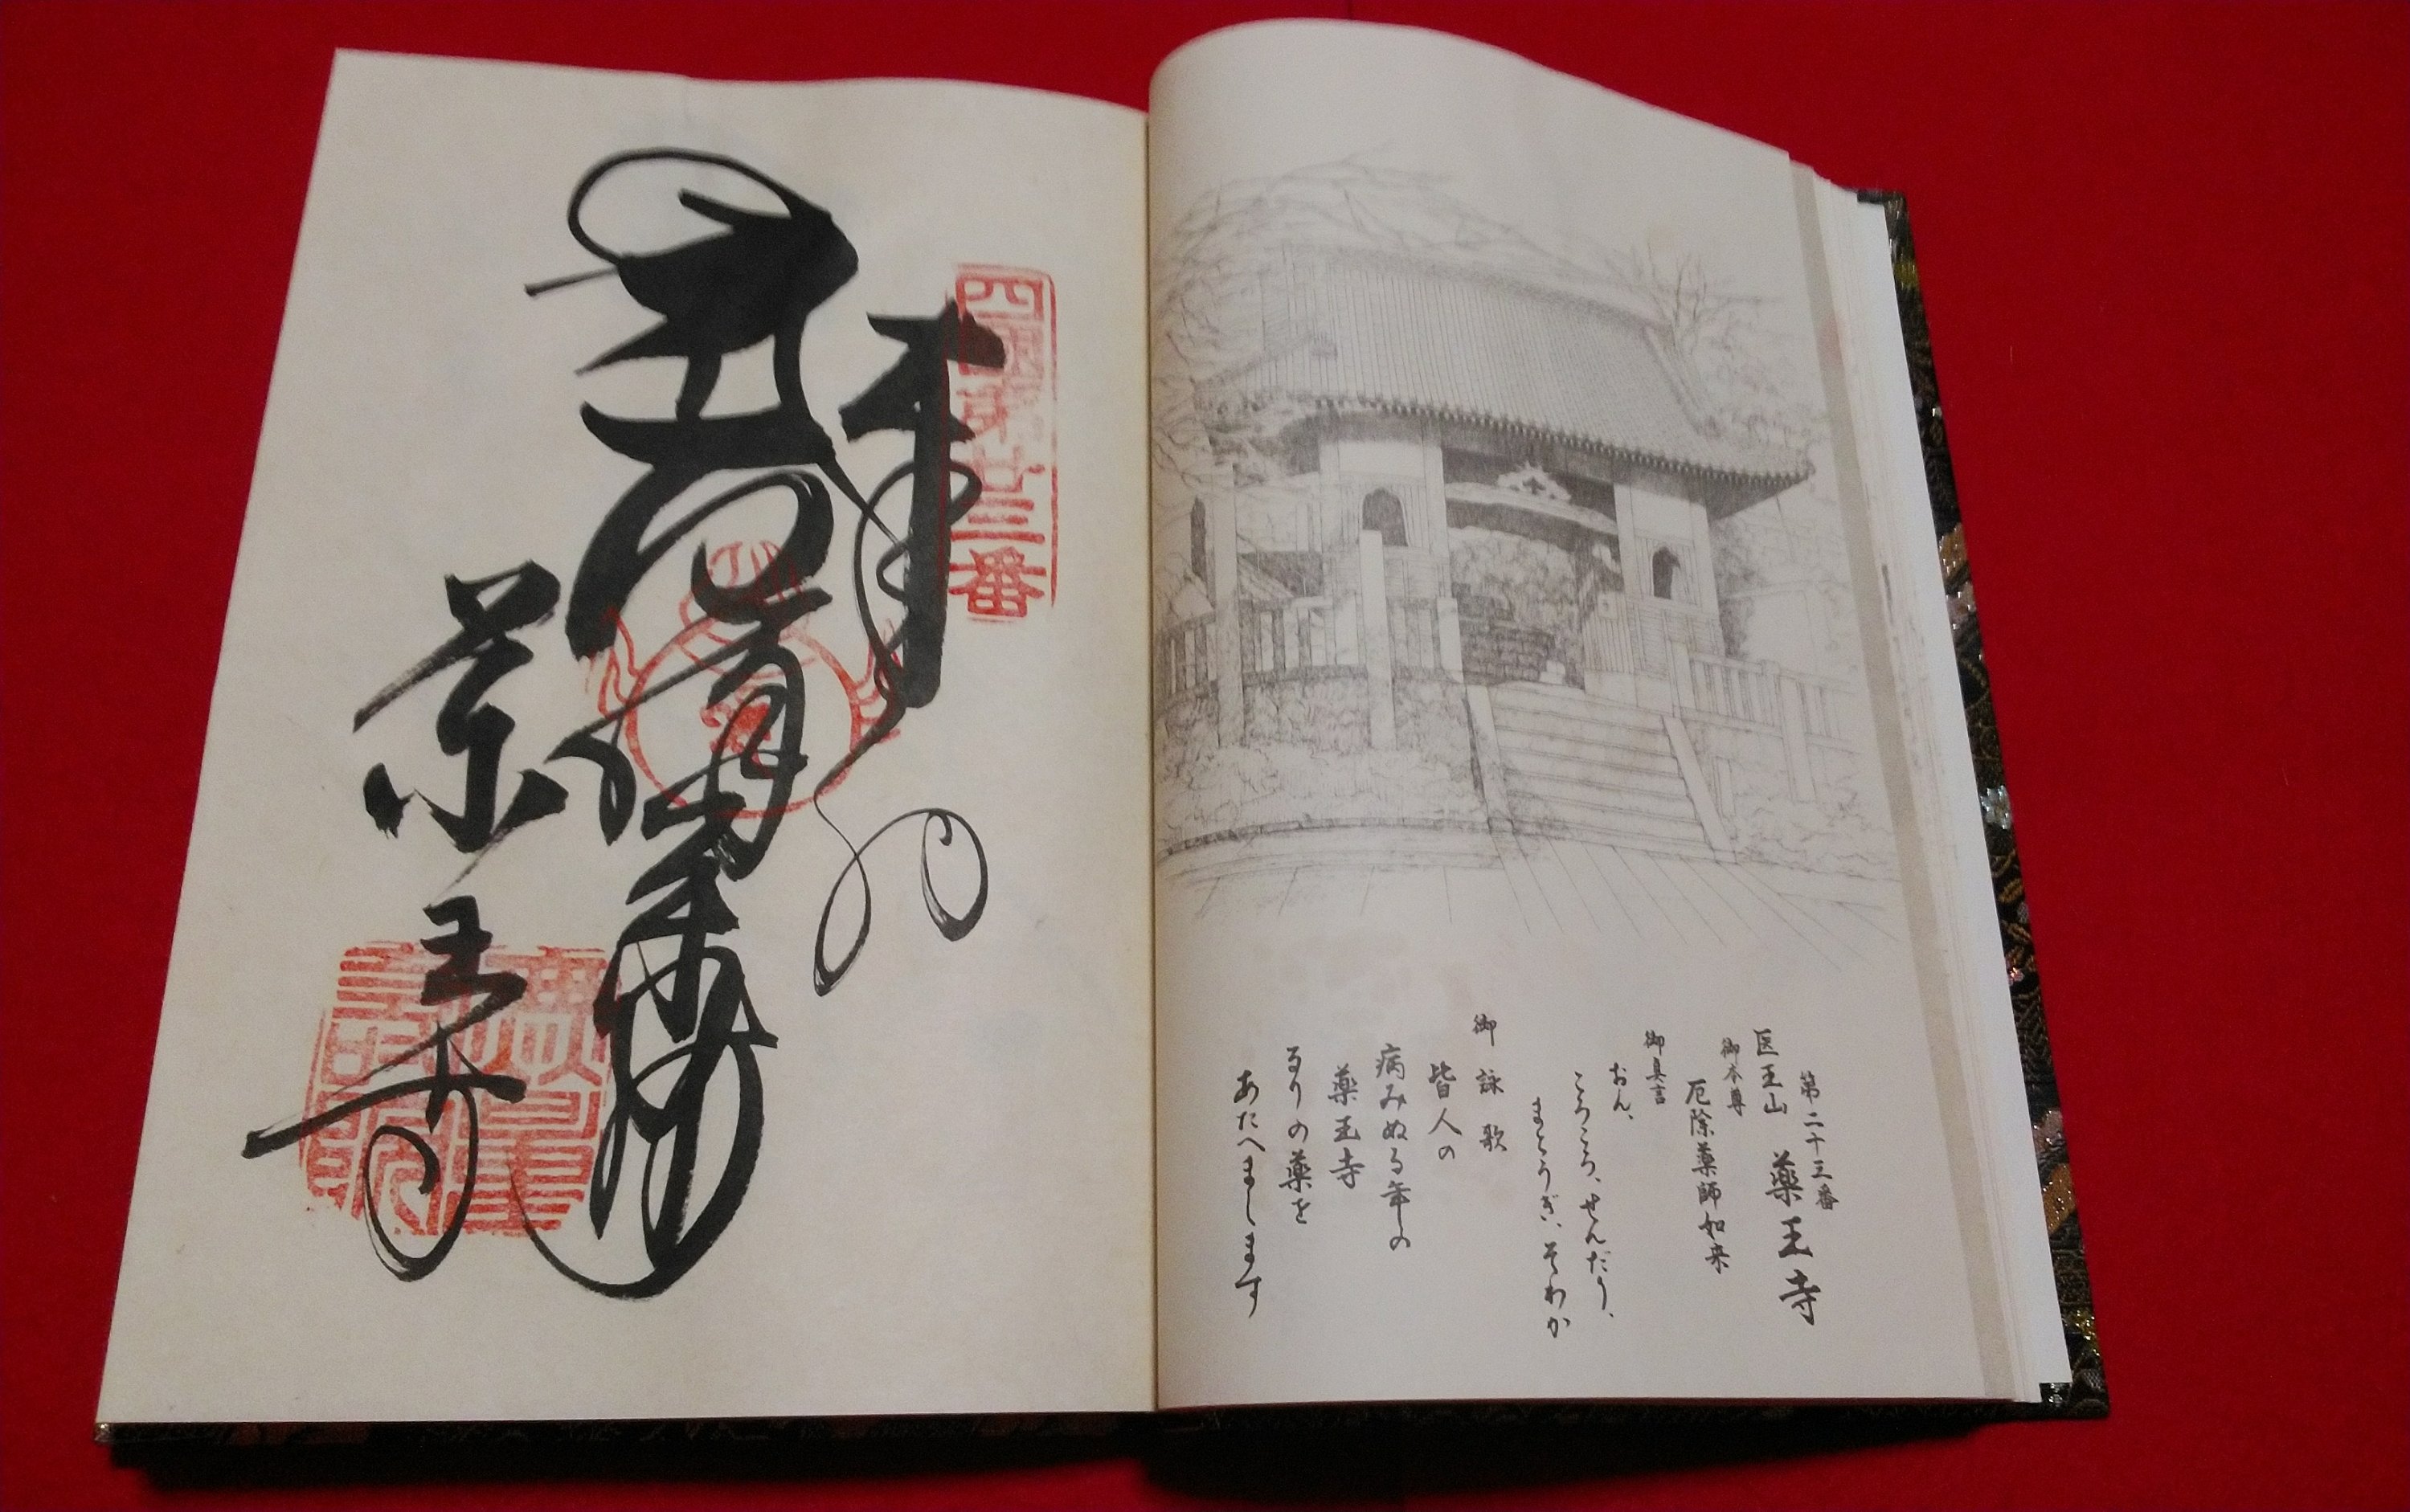 第二十三番
医王山 薬王寺
御本尊
厄除薬師如来
御真言
おん、
ころころ、せんだり、
まとうぎ、そわか
御詠歌
皆人の
病みぬる年の
薬王寺
るりの薬を
あたへまします
四國第廿三番
奉
薬王寺